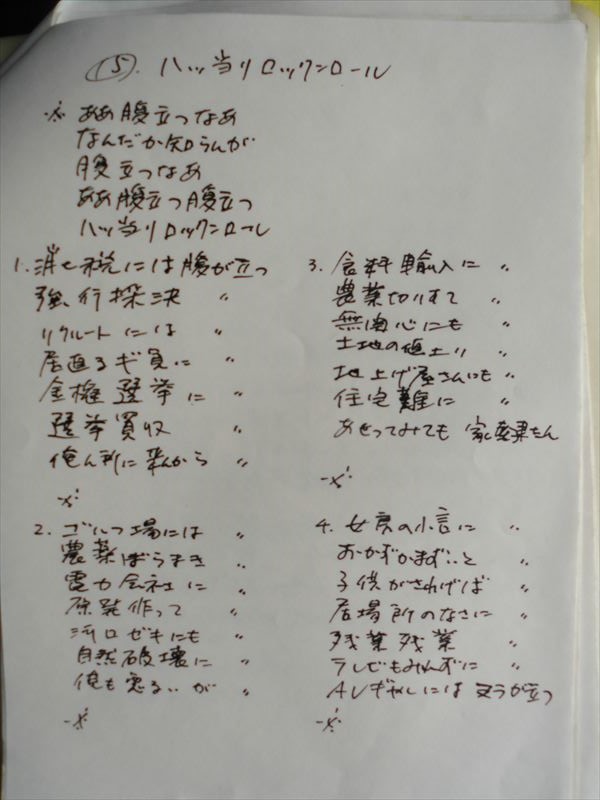 ⑮. ハッ当りロックンロール
※ ああ腹立つなあ
なんだか知らんが
腹立つなあ
ああ腹立つ腹立つ
ハッ当りロックンロール
1. 消ヒ税には腹が立つ
強行採決 〃
リクルートには 〃
居直るギ員に 〃
金権選挙に 〃
選挙買収 〃
俺ん所に来んから 〃
※
2. ゴルフ場には 〃
農薬ばらまき 〃
電力会社に 〃
原発作って 〃
河口ゼキにも 〃
自然破壊に 〃
俺も悪るいが 〃
※
3. 食料輸入に 〃
農業切りすて 〃
無関心にも 〃
土地の値上り 〃
地上げ屋さんにも 〃
住宅難に 〃
あせってみても 家
※
4. 女房の小言に 〃
おかずがまずいと 〃
子供がさわげば 〃
居場所のなさに 〃
残業残業 〃
テレビもみんずに 〃
AVギャルには 又ラが立つ
※